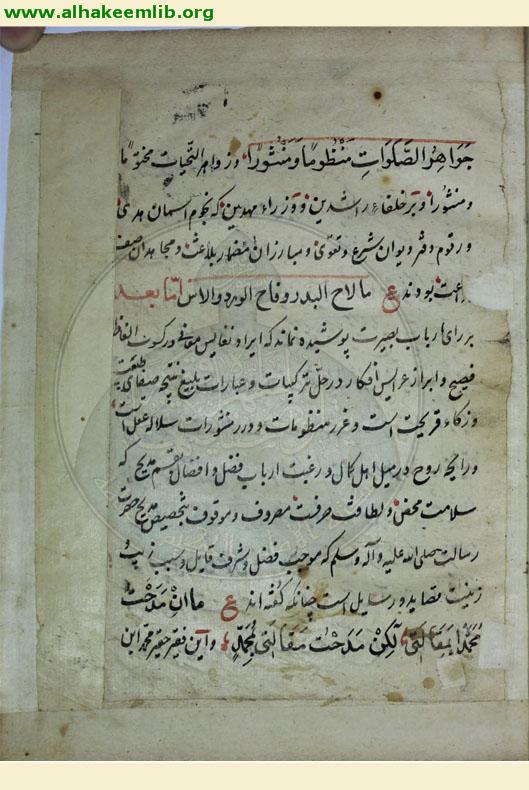 www.alhakeemlib.org
جَوَاهِرُ الصَّلَوَاتِ مَنْظُومًا وَمَنْثُورًا، و زواهر التحیات مختومًا
و منثورًا و بر خلفاء راشدین و وزراء مهدیین که نجوم آسمان هدی
و رقوم دفتر دیوان شرع و تقوی و مبارزان مضمار بلاغت و مجاهدان
بودند ع ما لاح البدر و فاح الورد والاس امّا بعد
بر رای ارباب بصیرت پوشیده نماند که ایراد نفایس معانی در کسوت الفاظ
فصیح و ابراز عرایس افکار در حلل ترکیبات و عبارات بلیغ نتیجه صفای طبیعت
و زکاء قریحت است و غرر منظومات و درر منثورات سلاله عقل است
و رایحه روح در میل اهل کمال و رغبت ارباب فضل و افضال بقسم مدیح که
سلامت محض و لطافت صرفست مصروف و موقوف بتخصیص مدیح حضرت
رسالت صلی الله علیه و آله و سلم که موجب فضل و شرف قایل و سبب زیب و
زینت قصاید و رسایل است چنانکه گفته اند ع ما اِنْ مَدَحْتُ
مُحَمَّدًا بِمَقَالَتِی، لٰکِنْ مَدَحْتُ مَقَالَتِی بِمُحَمَّدٍ، و این فقیر حقیر محمد ابن